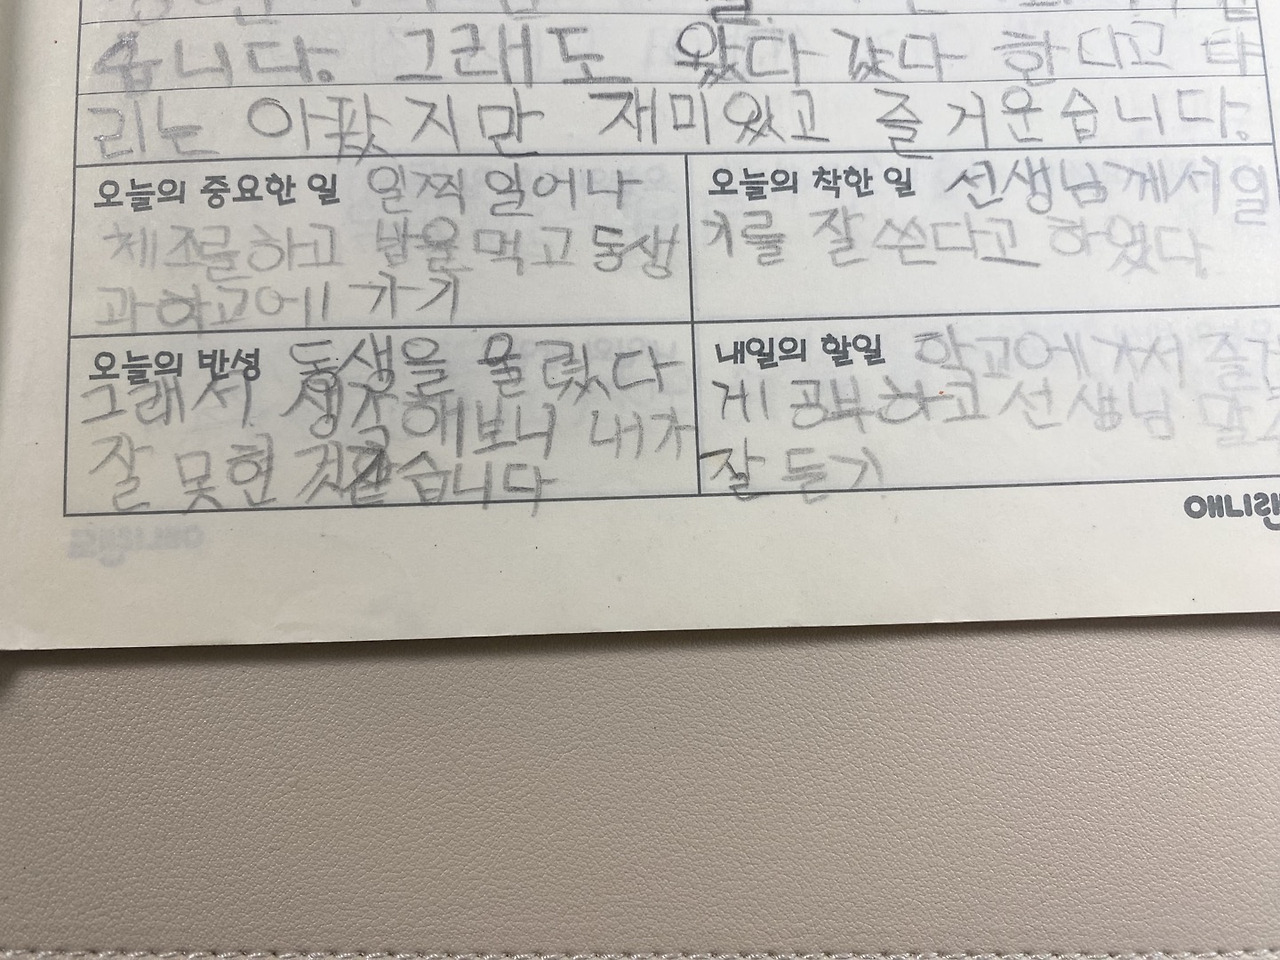 습니다. 그래도 왔다 갔다 한다고 다
리는 아팠지만 재미있고 즐거운습니다.
오늘의 중요한 일 일찍 일어나
체조를하고 밥을먹고 동생
과학교에 가기
오늘의 착한 일 선생님께서 일
기를 잘 쓴다고 하였다
오늘의 반성 동생을 울렸다
그래서 생각해보니 내가
잘 못현 것같습니다
내일의 할일 학교에가서 즐겁
게 공부하고 선생님 말씀
잘 듣기
애니랜